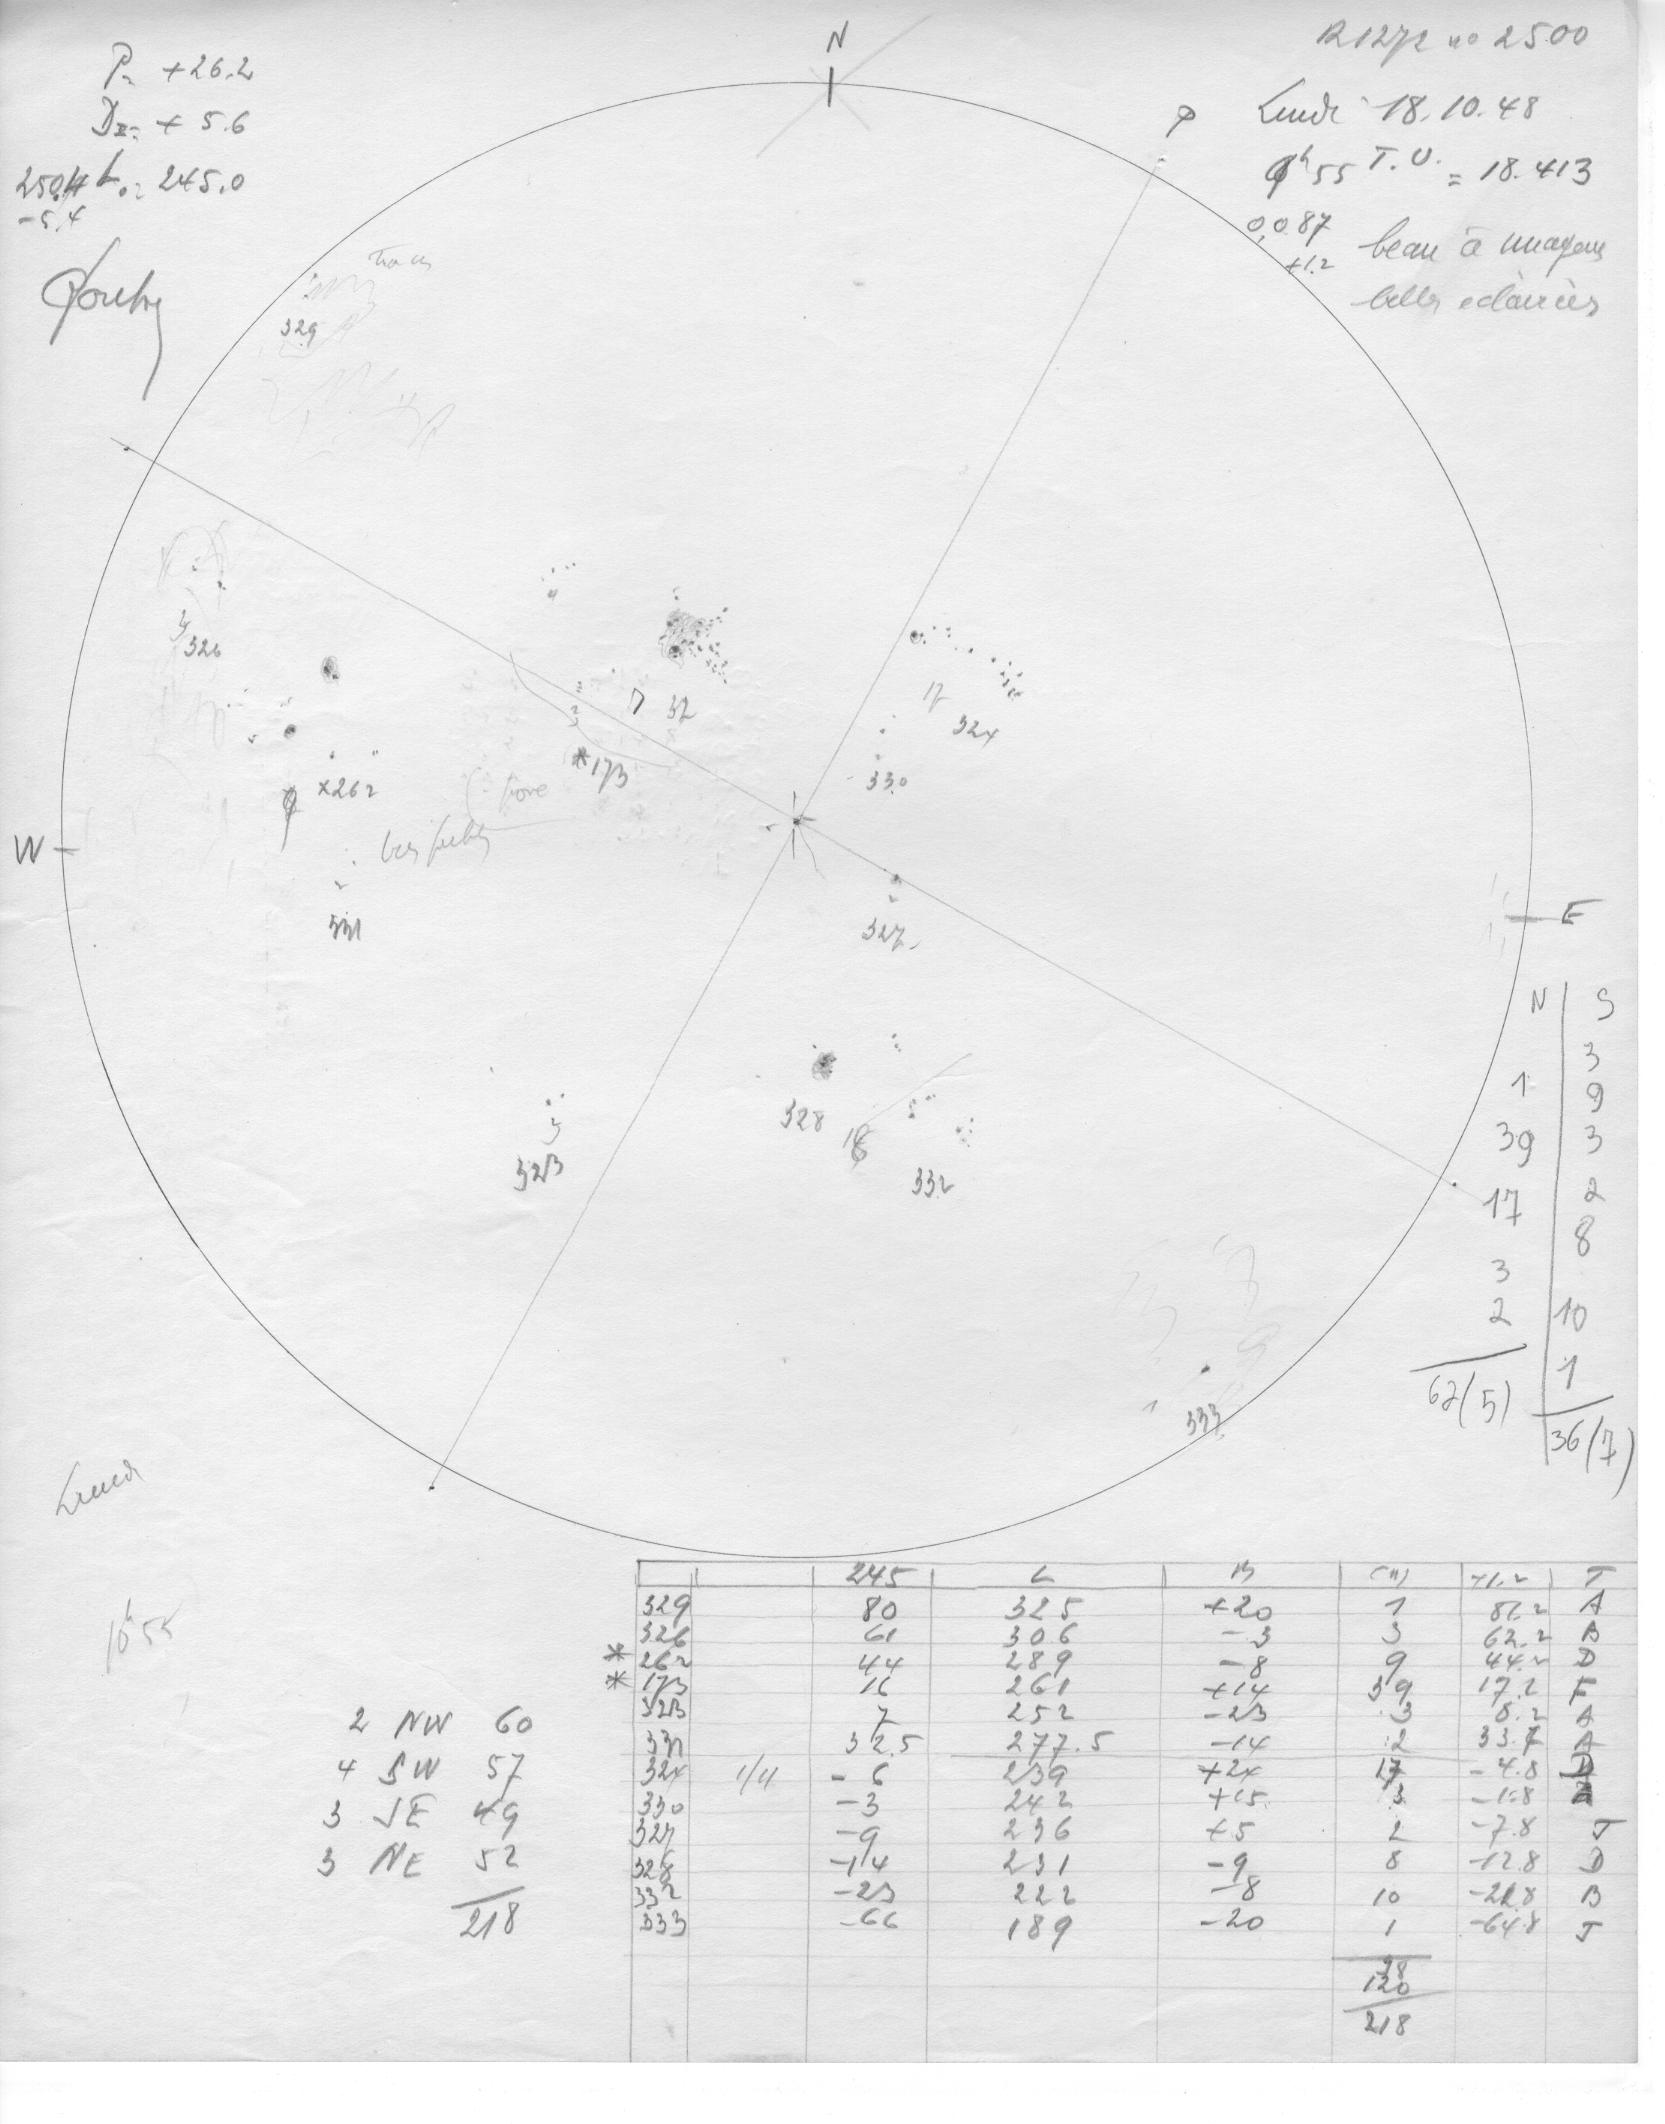 N
P= +26.2
+5.6
245.0
-5.4
no 2500
P
Lundi 18.10.48
55 T.U. = 18.413
0,087
+1.2
beau à nuageux
belles éclaircies
329
3
326
4
×262
9
331
2
32
*173
17
324
330
3
327
2
328
332
323
3
333
1
W
E
N S
3
1 9
39 3
17 2
8
3
2 10
1
62(5)
36(7)
Lundi
2 NW 60
4 SW 57
3 SE 49
3 NE 52
218
245 L B +1.2 T
329 80 325 +20 1 81.2 A
326 61 306 -3 3 62.2 B
* 262 44 289 -8 9 44.2 D
* 173 16 261 +14 39 17.2 F
323 7 252 -23 3 8.2 A
331 32.5 277.5 -14 2 33.7 A
324 -6 239 +24 17 -4.8 D
330 -3 242 +15 3 -1.8
327 -9 236 +5 2 -7.8 J
328 -14 231 -9 8 -12.8 D
332 -23 222 -8 10 -21.8 B
333 -66 189 -20 1 -64.8 J
120
218